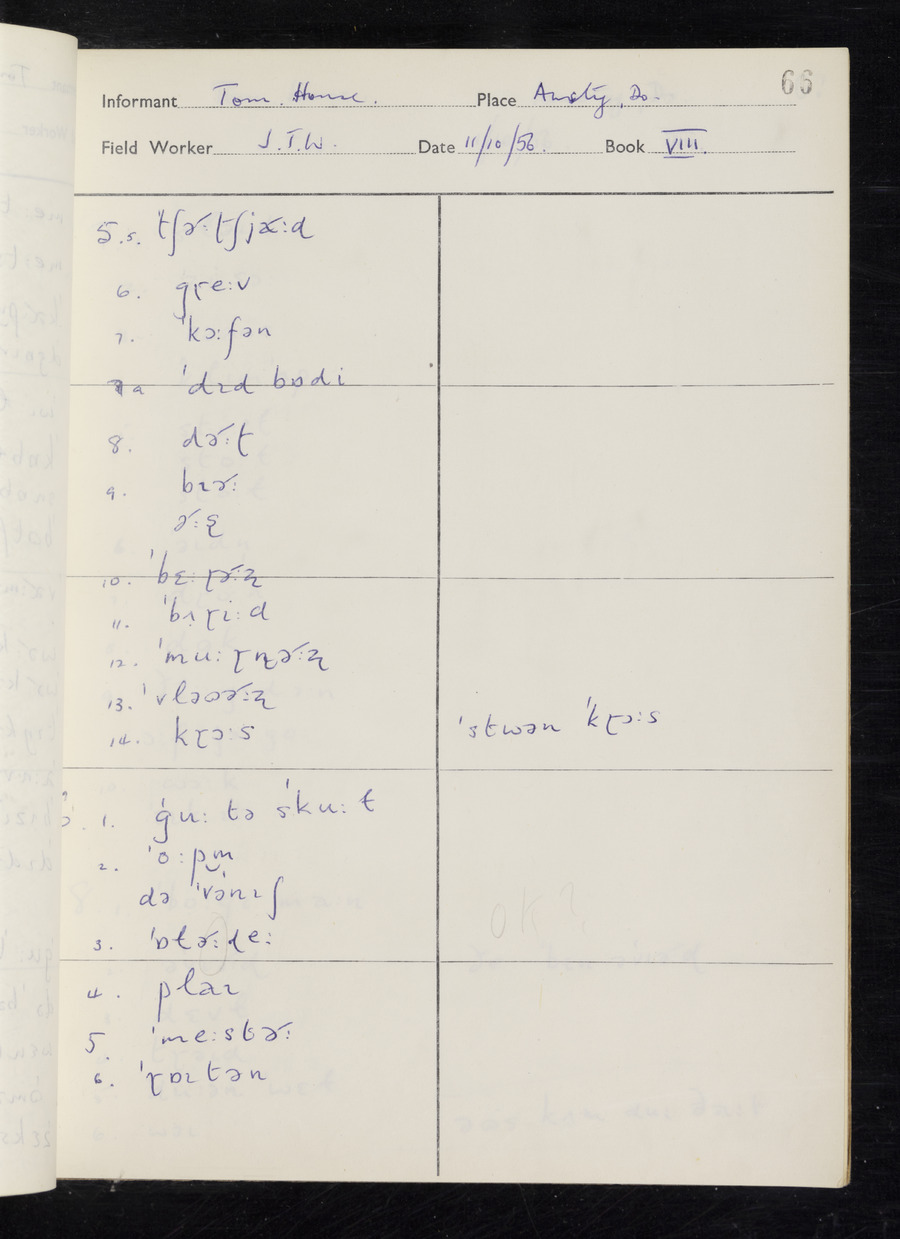 66
Informant Tom. House. Place Ansty, Do.
Field Worker J.T.W. Date 11/10/56. Book VIII.
5.5. ˈtʃɚːtʃjæːd
6. gɽeːv
7. ˈkɔːfən
7a ˈdɪd bɒdi
8. dɚːʈ
9. bɪɚː
ɚːʂ
10. ˈbɛːɽɚːʐ
11. ˈbɪɽiːd
12. ˈmuːɽɳɚːʐ
13. ˈvləʊɚːʐ
14. kɽɔːs ˈstwən ˈkɽɔːs
1. ˈguː tə ˈskuːɫ
2. ˈoːpm
də ˈvənɪʃ
OK?
3. ˈɒtɚːdeː
4. plaɪ
5. ˈmeːstɚː
6. ˈɽɒɪtən